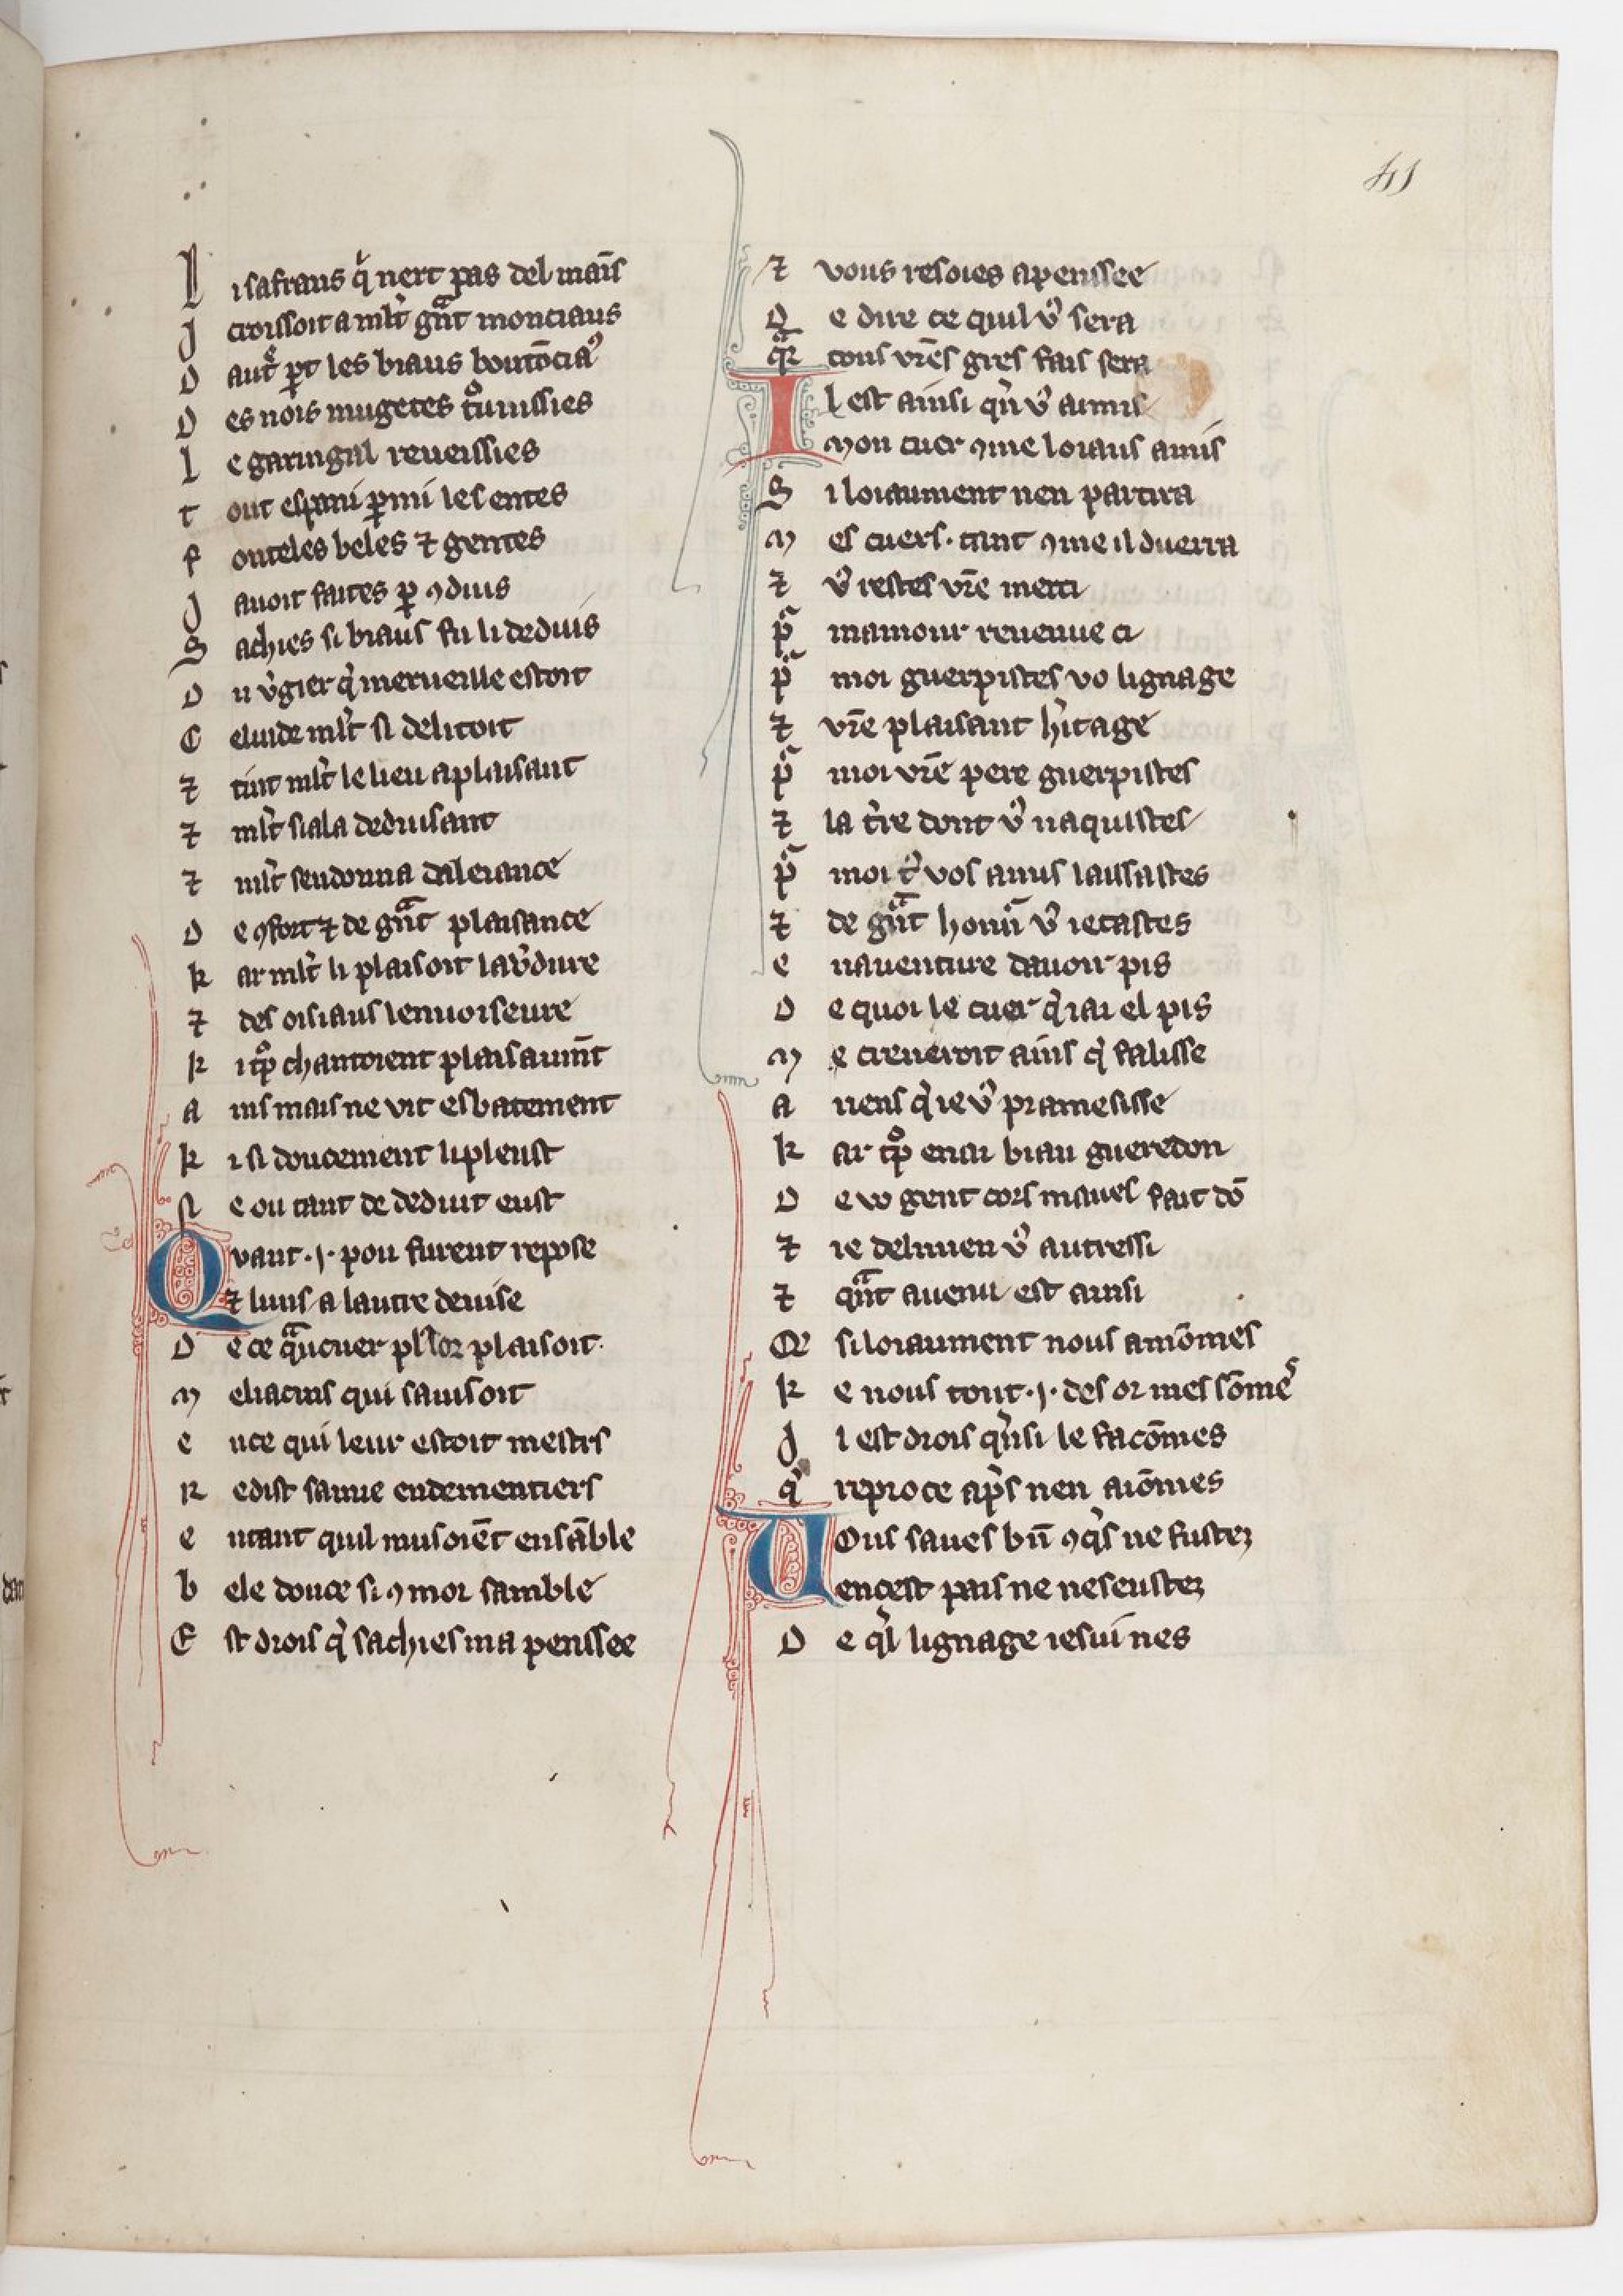 41
L i safrans q̾ nert pas del mains
J croissoit a ml̃t gr̃nt monciaus
D autͤ ꝑt les biaus boutõciaꝰ
D es nois mugetes t̾ouuissies
L e garingal reueissies
T out espani ꝑmi les entes
F onteles beles ⁊ gentes
J auoit faites ꝑ ꝯduis
S achies si biaus fu li deduis
D u v̾gier q̾ merueille estoit
C eluide ml̃t si delitoit
⁊ tint ml̃t le lieu a plaisant
⁊ ml̃t si ala deduisant
⁊ ml̃t sendonna daleiance
D e ꝯfort ⁊ de gr̃nt plaisance
K ar ml̃t li plaisoit la v̾dure
⁊ des oisiaus lenuoiseure
K i tꝓ chantoient plaisaum̃t
A ins mais ne vit esbatement
K i si doucement li pleust
N e ou tant de deduit eust
Quant .j. pou furent repose
⁊ luns a lautre deuise
D e ce q̃ucuer pl᷑ lor plaisoit.
M eliacins qui sauisoit
E nce qui leur estoit mestrs
R edist samie endementiers
E ntant quil musoiẽt ensãble
B ele douce si ꝯ moi samble
E st drois q̾ sachies ma penssee
⁊ vous resoies apenssee
D e dire ce quil vꝰ sera
q̃r tous vr̃es gres fais sera
Il est ainsi q̾n vꝰ ai mis
Mon cuer ꝯme loiaus amis
S i loiaument nen partira
M es cuers. tant ꝯme il duerra
⁊ vꝰ restes vr̃e merci
p̃ mamour reuenue ci
p̃ moi guerpistes vo lignage
⁊ vr̃e plaisant h̾itage
p̃ moi vr̃e pere guerpistes
⁊ la t̾re dont vꝰ naquistes
p̃ moi t̾ vos amis laissastes
⁊ de gr̃nt honũ vꝰ ietastes
E nauenture dauoir pis
D e quoi le cuer q̾ iai el pis
M e creueroit ains q̾ falisse
A riens q̾ ie vꝰ pramesisse
K ar tꝓ enai biau gueredon
D e vo gent cors maues fait dõ
⁊ ie delmien vꝰ autressi
⁊ q̃nt auenu est ainsi
Or si loiaument nous amõmes
K e nous tout .j. des or mes sõmes
J l est drois q̾nsi le facõmes
q̾ reproce ap̾s nen aiõmes
Vous saues bñ ꝯq̾s ne fustez
Vencest pais ne neseustez
D e q̾l lignage iesui nes